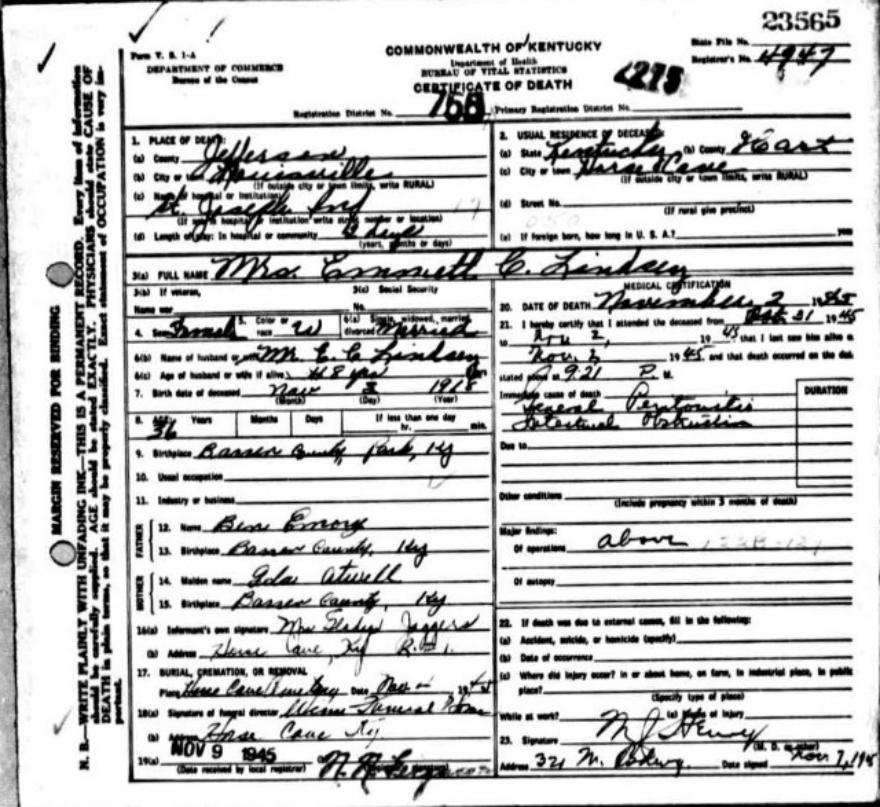 23565
Form V. S. 1-A
DEPARTMENT OF COMMERCE
Bureau of the Census
COMMONWEALTH OF KENTUCKY
Department of Health
BUREAU OF VITAL STATISTICS
CERTIFICATE OF DEATH
State File No.
Registrar's No. 4947
4275
Registration District No. 758 Primary Registration District No.
MARGIN RESERVED FOR BINDING
N. B.—WRITE PLAINLY WITH UNFADING INK—THIS IS A PERMANENT RECORD. Every item of information
should be carefully supplied. AGE should be stated EXACTLY. PHYSICIANS should state CAUSE OF
DEATH in plain terms, so that it may be properly classified. Exact statement of OCCUPATION is very im-
portant.
1. PLACE OF DEATH:
(a) County Jefferson
(b) City or town Louisville
(If outside city or town limits, write RURAL)
(c) Name of hospital or institution:
St. Joseph Inf
(If not in hospital or institution write street number or location)
(d) Length of stay: In hospital or community days
(years, months or days)
2. USUAL RESIDENCE OF DECEASED:
(a) State Kentucky (b) County Hart
(c) City or town Horse Cave
(If outside city or town limits, write RURAL)
(d) Street No.
(If rural give precinct)
(e) If foreign born, how long in U. S. A.?
3(a) FULL NAME Mrs. Emmett C. Lindsey
3(b) If veteran,
Name war
3(c) Social Security
No.
4. Sex Female 5. Color or race W 6(a) Single, widowed, married, divorced Married
6(b) Name of husband or wife Mr. E. C. Lindsey
6(c) Age of husband or wife if alive 48 yrs
7. Birth date of deceased Nov 3 1918
(Month) (Day) (Year)
8. AGE: Years Months Days If less than one day
36 hr. min.
9. Birthplace Barren County, Park, Ky
10. Usual occupation
11. Industry or business
FATHER
12. Name Emory
13. Birthplace Barren County, Ky
MOTHER
14. Maiden name Atwell
15. Birthplace Barren County, Ky
16(a) Informant's own signature Mrs Jaggers
(b) Address Horse Cave, Ky R.
17. BURIAL, CREMATION, OR REMOVAL
Place Horse Cave Date Nov 19
18(a) Signature of funeral director Funeral Home
(b) Address Horse Cave Ky
19(a) NOV 9 1945
(Date received by local registrar)
MEDICAL CERTIFICATION
20. DATE OF DEATH November 2 1945
21. I hereby certify that I attended the deceased from Oct 31 1945
to Nov 2, 1945 that I last saw him alive
Nov. 2 1945, and that death occurred on the date
stated above at 9:21 P. M.
Immediate cause of death
General Peritonitis
Intestinal Obstruction
DURATION
Due to
Other conditions
(Include pregnancy within 3 months of death)
Major findings:
Of operations above
Of autopsy
22. If death was due to external causes, fill in the following:
(a) Accident, suicide, or homicide (specify)
(b) Date of occurrence
(c) Where did injury occur? in or about home, on farm, in industrial place, in public
place?
(Specify type of place)
While at work? (e) Means of injury
23. Signature M J Henry
(M. D. or other)
Address 321 W. Bdwy. Date signed Nov 7, 194